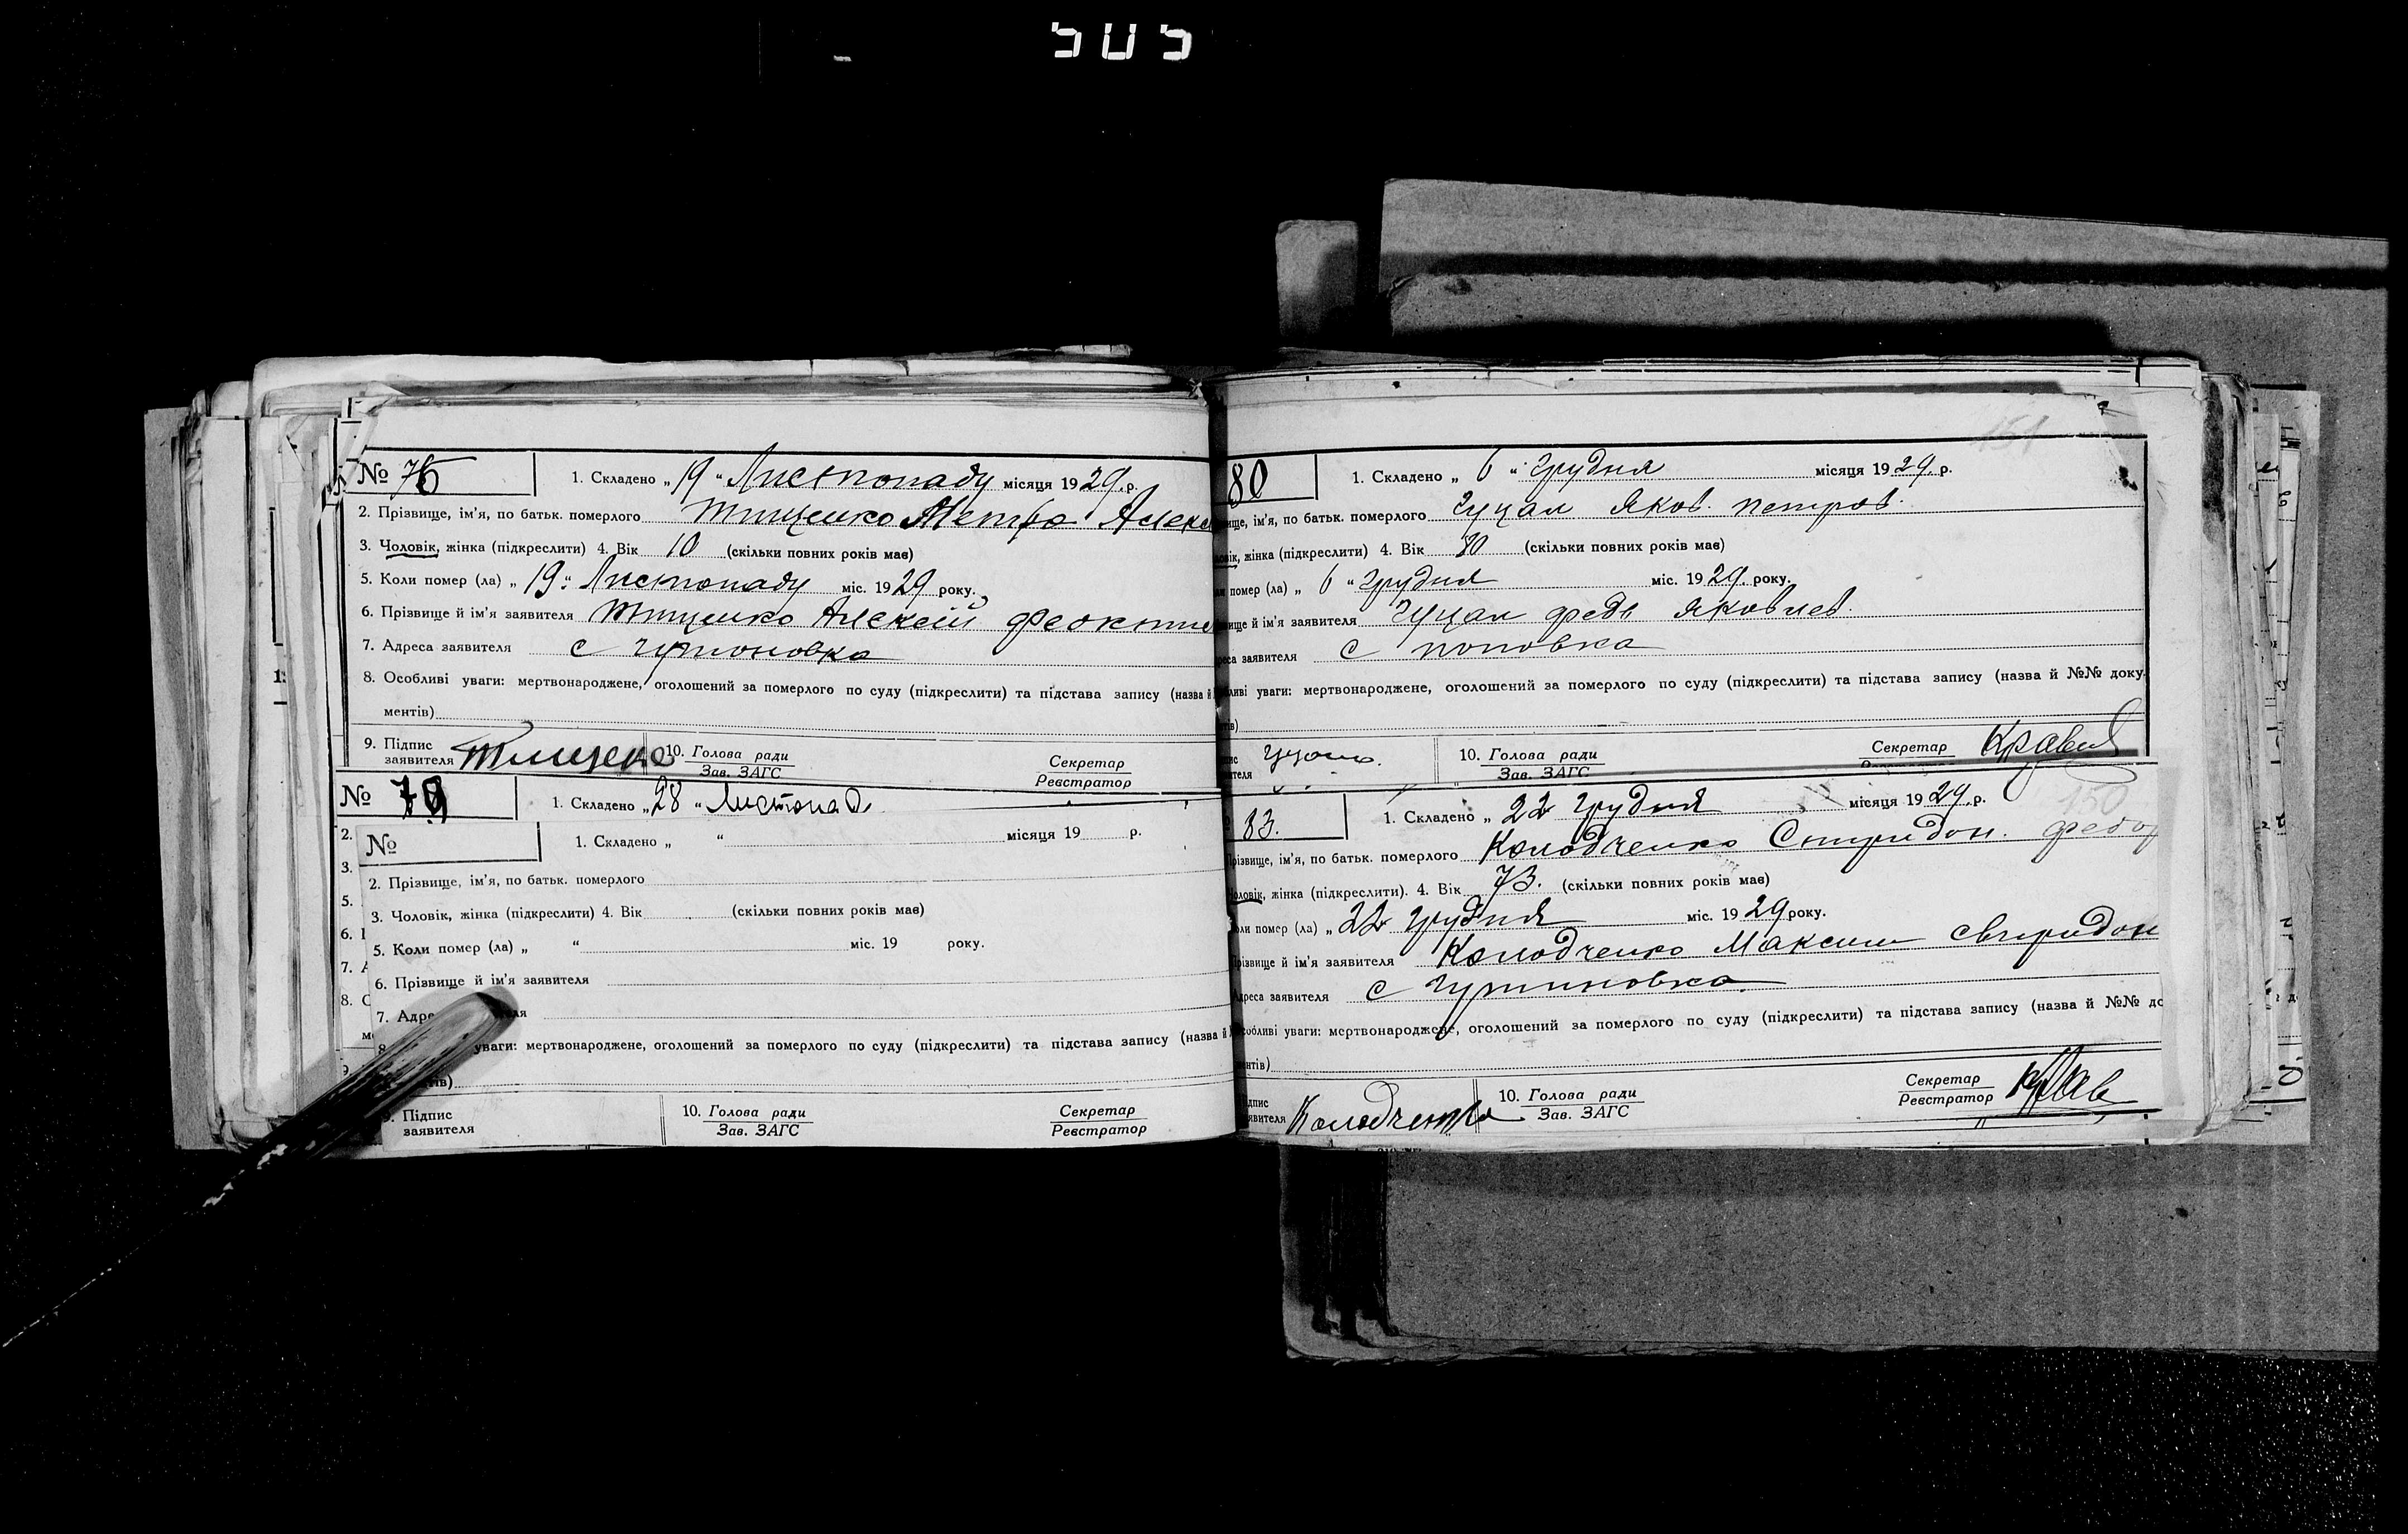 505
№ 75
1. Складено „19" Листопаду місяця 1929 р.
2. Прізвище, ім'я, по батьк. померлого Тищенко Петро Алекс
3. Чоловік, жінка (підкреслити) 4. Вік 10 (скільки повних років має)
5. Коли помер (ла) „19" Листопаду міс. 1929 року.
6. Прізвище й ім'я заявителя Тищенко Алексій Феокти
7. Адреса заявителя с
8. Особливі уваги: мертвонароджене, оголошений за померлого по суду (підкреслити) та підстава запису (назва й
ментів)
9. Підпис заявителя Тищенко 10. Голова ради Зав. ЗАГС Секретар Реєстратор
№ 79
1. Складено „28" Листопад
2.
3.
5.
6.
7. А
8. О
№
1. Складено „ " місяця 19 р.
2. Прізвище, ім'я, по батьк. померлого
3. Чоловік, жінка (підкреслити) 4. Вік (скільки повних років має)
5. Коли помер (ла) „ " міс. 19 року.
6. Прізвище й ім'я заявителя
7. Адре ля
8. уваги: мертвонароджене, оголошений за померлого по суду (підкреслити) та підстава запису (назва й
тів)
9. Підпис заявителя 10. Голова ради Зав. ЗАГС Секретар Реєстратор
80
1. Складено „ 6 " грудня місяця 1929 р.
вище, ім'я, по батьк. померлого Гуцал Яков. Петров.
овік, жінка (підкреслити) 4. Вік 80 (скільки повних років має)
помер (ла) „ 6 " грудня міс. 1929. року.
вище й ім'я заявителя Гуцал Федь Яковлев.
реса заявителя с Поповка
ливі уваги: мертвонароджене, оголошений за померлого по суду (підкреслити) та підстава запису (назва й №№ доку
нтів)
10. Голова ради Зав. ЗАГС Секретар
83.
150
1. Складено „ 22 грудня місяця 1929. р.
різвище, ім'я, по батьк. померлого Колодченко Спиридон. Федор
оловік, жінка (підкреслити). 4. Вік 73. (скільки повних років має)
оли помер (ла) „ 22 грудня міс. 1929 року.
різвище й ім'я заявителя Колодченко Максим Свиридон
дреса заявителя с
собливі уваги: мертвонароджене, оголошений за померлого по суду (підкреслити) та підстава запису (назва й №№ до
ментів)
дпис явителя Колодченко 10. Голова ради Зав. ЗАГС Секретар Реєстратор